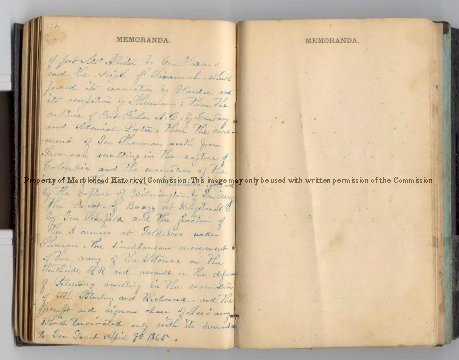 MEMORANDA.
MEMORANDA.
of fort McAllister by Gen Hazen
and the seige of Savannah which
forced its evacuation by Hardee and
its occupation by Sherman. Then the
capture of Fort Fisher N.C. by Gen Terry
and Admiral Porter, then the move-
ment of Gen Sherman north from
Savannah resulting in the capture of
Columbia and the evacuation of
Property of Marblehead Historical Commission. This image may only be used with written permission of the Commission
by the capture of Wilmington by Gen Terry
the defeat of Bragg at
by Gen Schofield and the junction of
the 3 armies at Goldsboro under
Sherman. the simultaneous movement
of the army of the Potomac on the
Southside RR and assault on the defences
of Petersburg resulting in the evacuation
of Petersburg and Richmond and the
prompt and vigorous chase of Lees army
which terminated only with its surrender
to Gen Grant April 9th 1865.